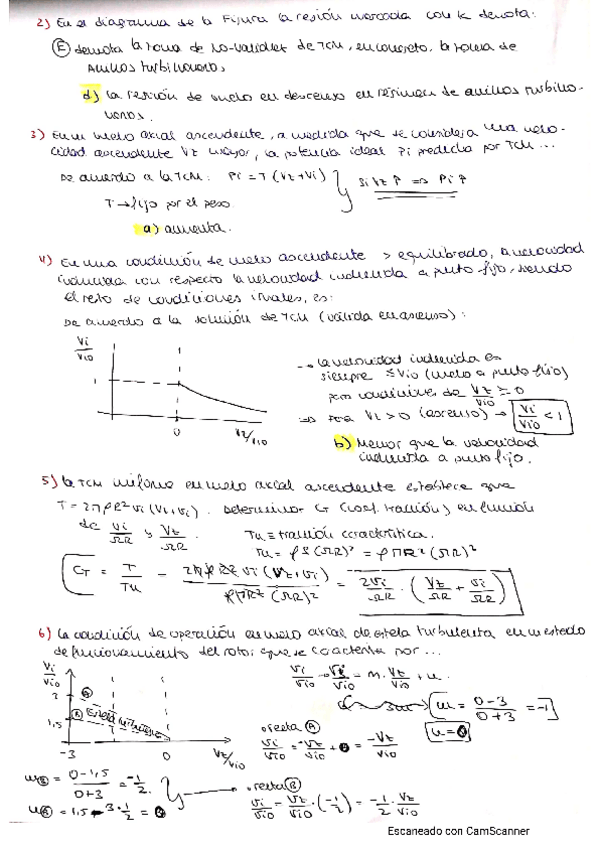 2) En el diagrama de la Figura la región marcada con K denota:
Ⓔ denota la zona de no-validez de TCM, en concreto, la zona de
anillos turbillonarios
d) La región de vuelo en descenso en régimen de anillos turbillo-
narios.
3) En un vuelo axial ascendente, a medida que se considera una velo-
cidad ascendente Vz mayor, la potencia ideal Pi predicha por TCM ...
De acuerdo a la TCM: Pi = T (Vz + Vi) } Si Vz ↑ ⇒ Pi ↑
T → fijo por el peso
a) aumenta.
4) En una condición de vuelo ascendente > equilibrado, la velocidad
inducida con respecto la velocidad inducida a punto fijo, siendo
el resto de condiciones iguales, es:
De acuerdo a la solución de TCM (válida en ascenso):
Vi/Vio
1
0
Vz/Vio
→ la velocidad inducida es
siempre ≤ Vio (vuelo a punto fijo)
para condiciones de Vz/Vio ≥ 0
⇒ para Vz > 0 (ascenso) → Vi/Vio < 1
b) Menor que la velocidad
inducida a punto fijo.
5) La TCM uniforme en vuelo axial ascendente establece que
T = 2πρR² vi (Vz + vi). Determinar CT (coef. tracción) en función
de Vi/ΩR y Vz/ΩR
Tu ≡ tracción característica.
Tu = ρ S (ΩR)² = ρ π R² (ΩR)²
CT = T/Tu = 2πρR² vi (Vz + vi) / ρπR² (ΩR)² = 2vi/ΩR · (Vz/ΩR + vi/ΩR)
6) La condición de operación en vuelo axial de estela turbulenta en un estado
de funcionamiento del rotor que se caracteriza por ...
Vi/Vio
3
1,5
Ⓐ
Ⓑ
Estela turbulenta
-3
0
Vz/Vio
m = 0-3/0+3 = -1
n = 0
• recta Ⓐ
vi/vio = -Vz/vio + 0 = -Vz/vio
mⒷ = 0-1,5/0+3 = -1/2
nⒷ = 1,5 - 3·1/2 = 0
• recta Ⓑ
vi/vio = Vz/vio · (-1/2) = -1/2 · Vz/vio
Escaneado con CamScanner